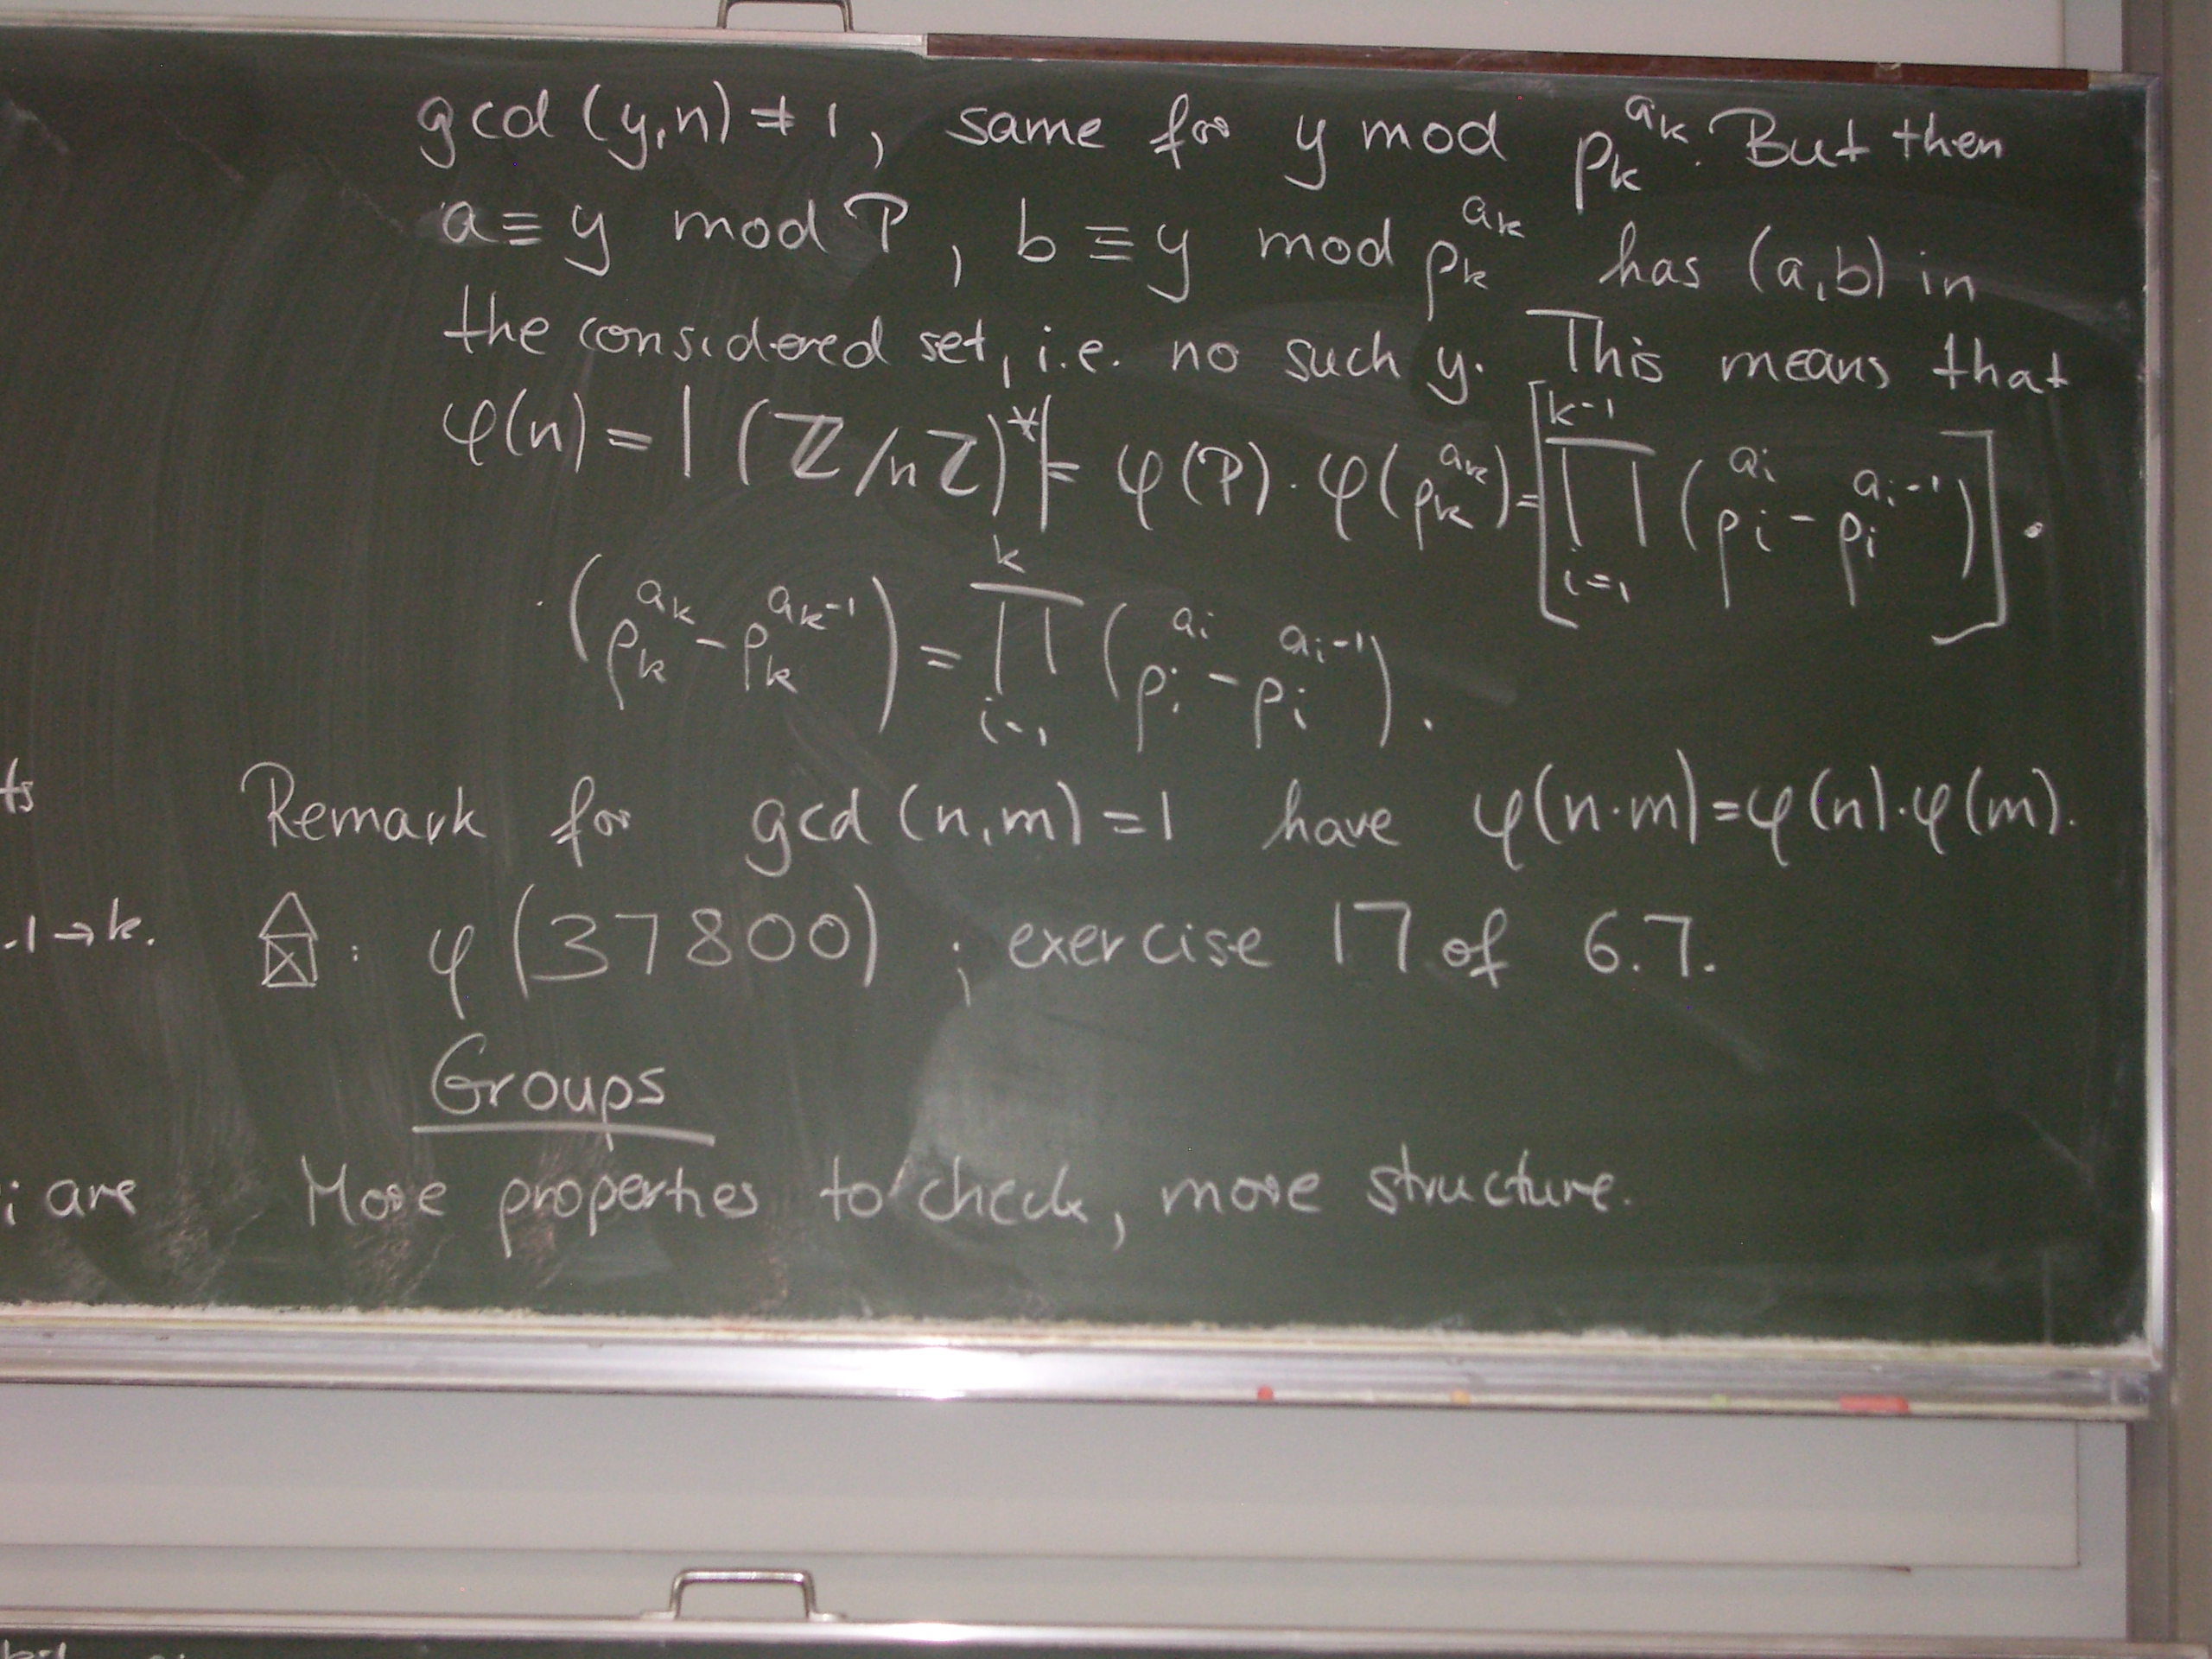 gcd (y,n) ≠ 1, same for y mod p_k^{a_k}. But then
a ≡ y mod P, b ≡ y mod p_k^{a_k} has (a,b) in
the considered set, i.e. no such y. This means that
φ(n) = |(ℤ/nℤ)^*| = φ(P) · φ(p_k^{a_k}) = [∏_{i=1}^{k-1} (p_i^{a_i} - p_i^{a_i-1})] ·
· (p_k^{a_k} - p_k^{a_k-1}) = ∏_{i=1}^{k} (p_i^{a_i} - p_i^{a_i-1}).
ts
Remark for gcd (n,m) = 1 have φ(n·m) = φ(n)·φ(m).
-1 → k.
: φ(37800) ; exercise 17 of 6.7.
Groups
i are
More properties to check, more structure.